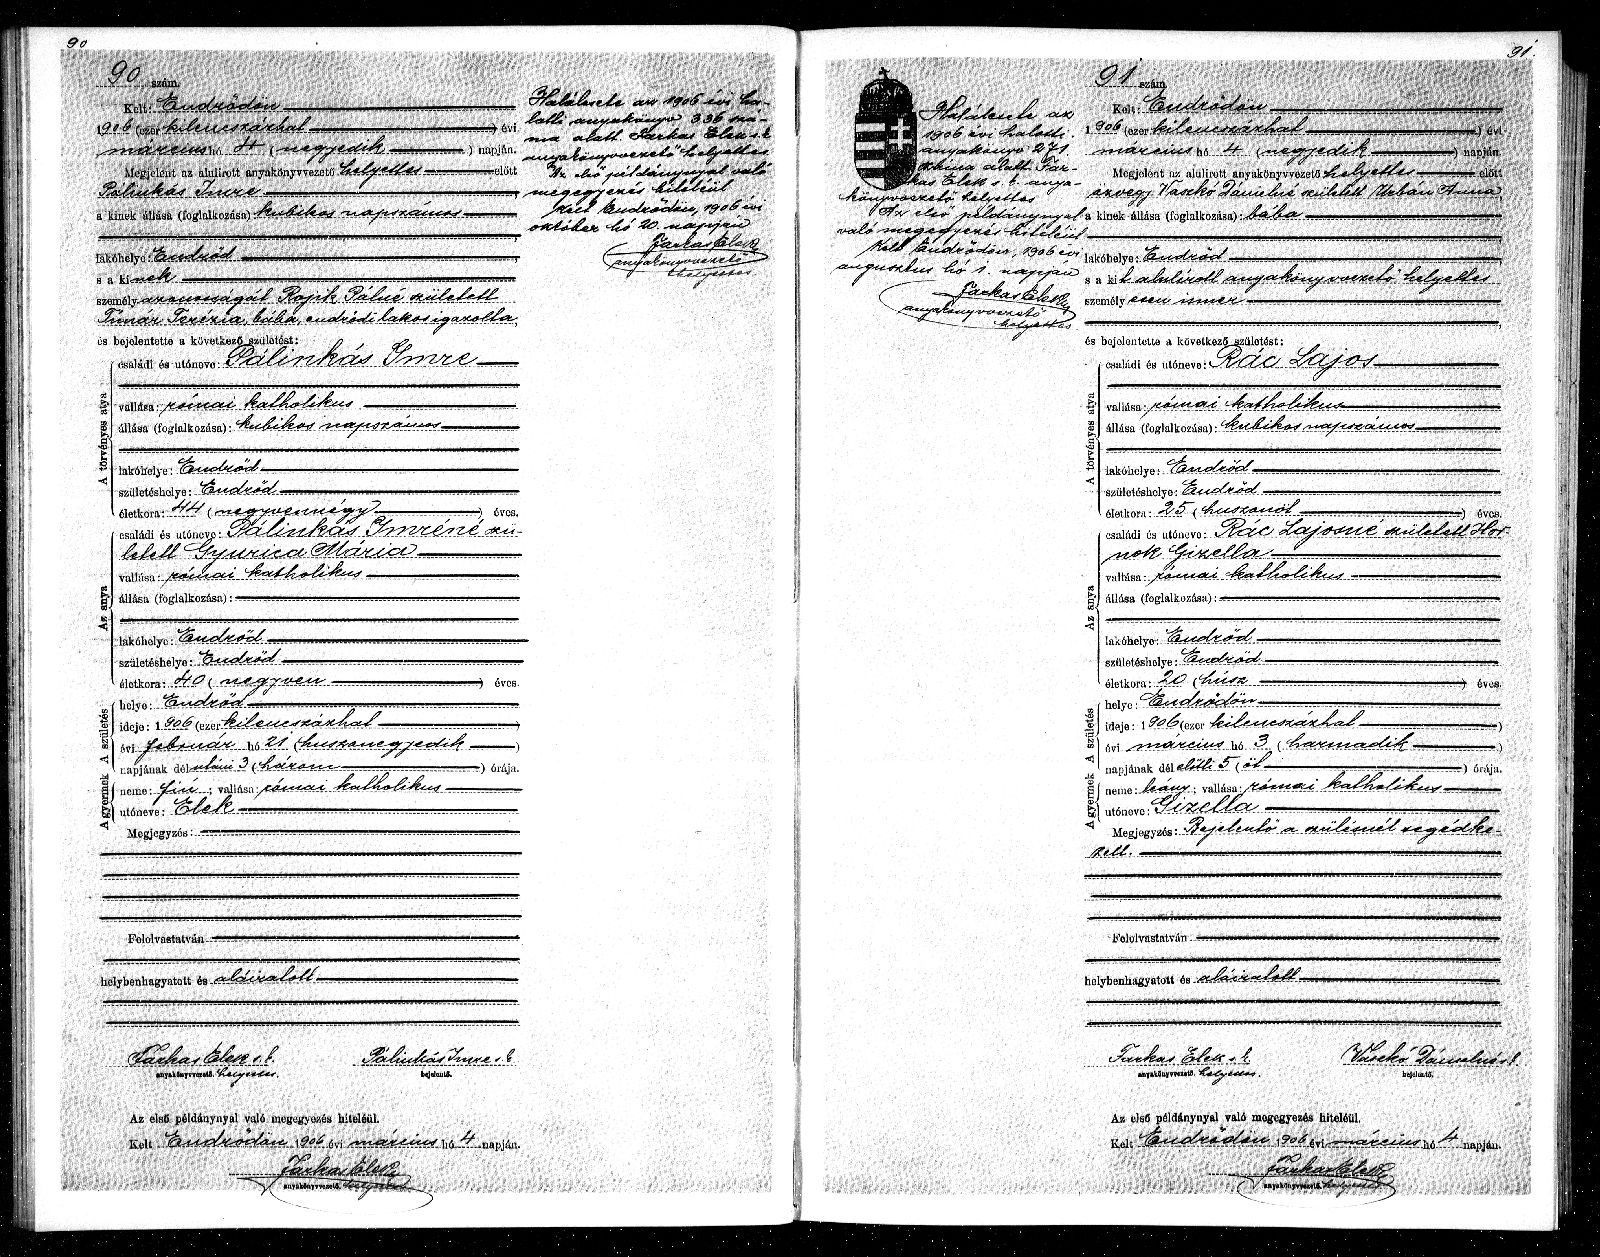 90
90 szám.
Kelt: Endrődön
1906 (ezer kilencszázhat) évi
március hó 4 (negyedik) napján.
Megjelent az alulirott anyakönyvvezető helyettes előtt
Pálinkás Imre
a kinek állása (foglalkozása) kubikos napszámos,
lakóhelye: Endrőd,
s a kinek
személyazonosságát Rojik Pálné született
Tímár Terézia, bába, endrődi lakos igazolta,
és bejelentette a következő születést:
A törvényes atya
családi és utóneve: Pálinkás Imre
vallása: római katholikus
állása (foglalkozása): kubikos napszámos
lakóhelye: Endrőd
születéshelye: Endrőd
életkora: 44 (negyvennégy) éves.
Az anya
családi és utóneve: Pálinkás Imréné szü-
letett Gyurica Mária
vallása: római katholikus
állása (foglalkozása):
lakóhelye: Endrőd
születéshelye: Endrőd
életkora: 40 (negyven) éves.
A születés
helye: Endrőd
ideje: 1906 (ezer kilencszázhat)
évi február hó 21 (huszonegyedik)
napjának délutáni 3 (három) órája.
A gyermek
neme: fiú; vallása: római katholikus
utóneve: Elek
Megjegyzés:
Felolvastatván
helybenhagyatott és aláiratott
Farkas Elek s. k. Pálinkás Imre s. k.
anyakönyvvezető helyettes. bejelentő.
Az első példánynyal való megegyezés hiteléül.
Kelt Endrődön 1906 évi március hó 4 napján.
Farkas Elek
anyakönyvvezető helyettes
Halálesete az 1906 évi ha-
lotti anyakönyv 336 szá-
ma alatt. Farkas Elek s. k.
anyakönyvvezető helyettes
Az első példánynyal való
megegyezés hiteléül
Kelt Endrődön, 1906 évi
október hó 20. napján
Farkas Elek
anyakönyvvezető
helyettes
91.
91 szám
Kelt: Endrődön
1906 (ezer kilencszázhat) évi
március hó 4 (negyedik) napján.
Megjelent az alulirott anyakönyvvezető helyettes előtt
özvegy Vaskó Dánielné született Urbán Anna
a kinek állása (foglalkozása): bába,
lakóhelye: Endrőd,
s a kit alulirott anyakönyvvezető helyettes
személyesen ismer,
és bejelentette a következő születést:
A törvényes atya
családi és utóneve: Rác Lajos
vallása: római katholikus
állása (foglalkozása): kubikos napszámos
lakóhelye: Endrőd
születéshelye: Endrőd
életkora: 25 (huszonöt) éves.
Az anya
családi és utóneve: Rác Lajosné született Hor-
nok Gizella
vallása: római katholikus
állása (foglalkozása):
lakóhelye: Endrőd
születéshelye: Endrőd
életkora: 20 (húsz) éves.
A születés
helye: Endrődön
ideje: 1906 (ezer kilencszázhat)
évi március hó 3 (harmadik)
napjának délelőtti 5 (öt) órája.
A gyermek
neme: leány; vallása: római katholikus
utóneve: Gizella
Megjegyzés: Bejelentő a szülésnél segédke-
zett.
Felolvastatván
helybenhagyatott és aláiratott
Farkas Elek s. k. Vaskó Dánielné s. k.
anyakönyvvezető helyettes. bejelentő.
Az első példánynyal való megegyezés hiteléül.
Kelt Endrődön 1906 évi március hó 4 napján.
Farkas Elek
anyakönyvvezető helyettes
Halálesete az
1906 évi halotti
anyakönyv 271
száma alatt. Far-
kas Elek s. k. anya-
könyvvezető helyettes
Az első példánynyal
való megegyezés hiteléül
Kelt Endrődön, 1906 évi
augusztus hó 1. napján
Farkas Elek
anyakönyvvezető
helyettes